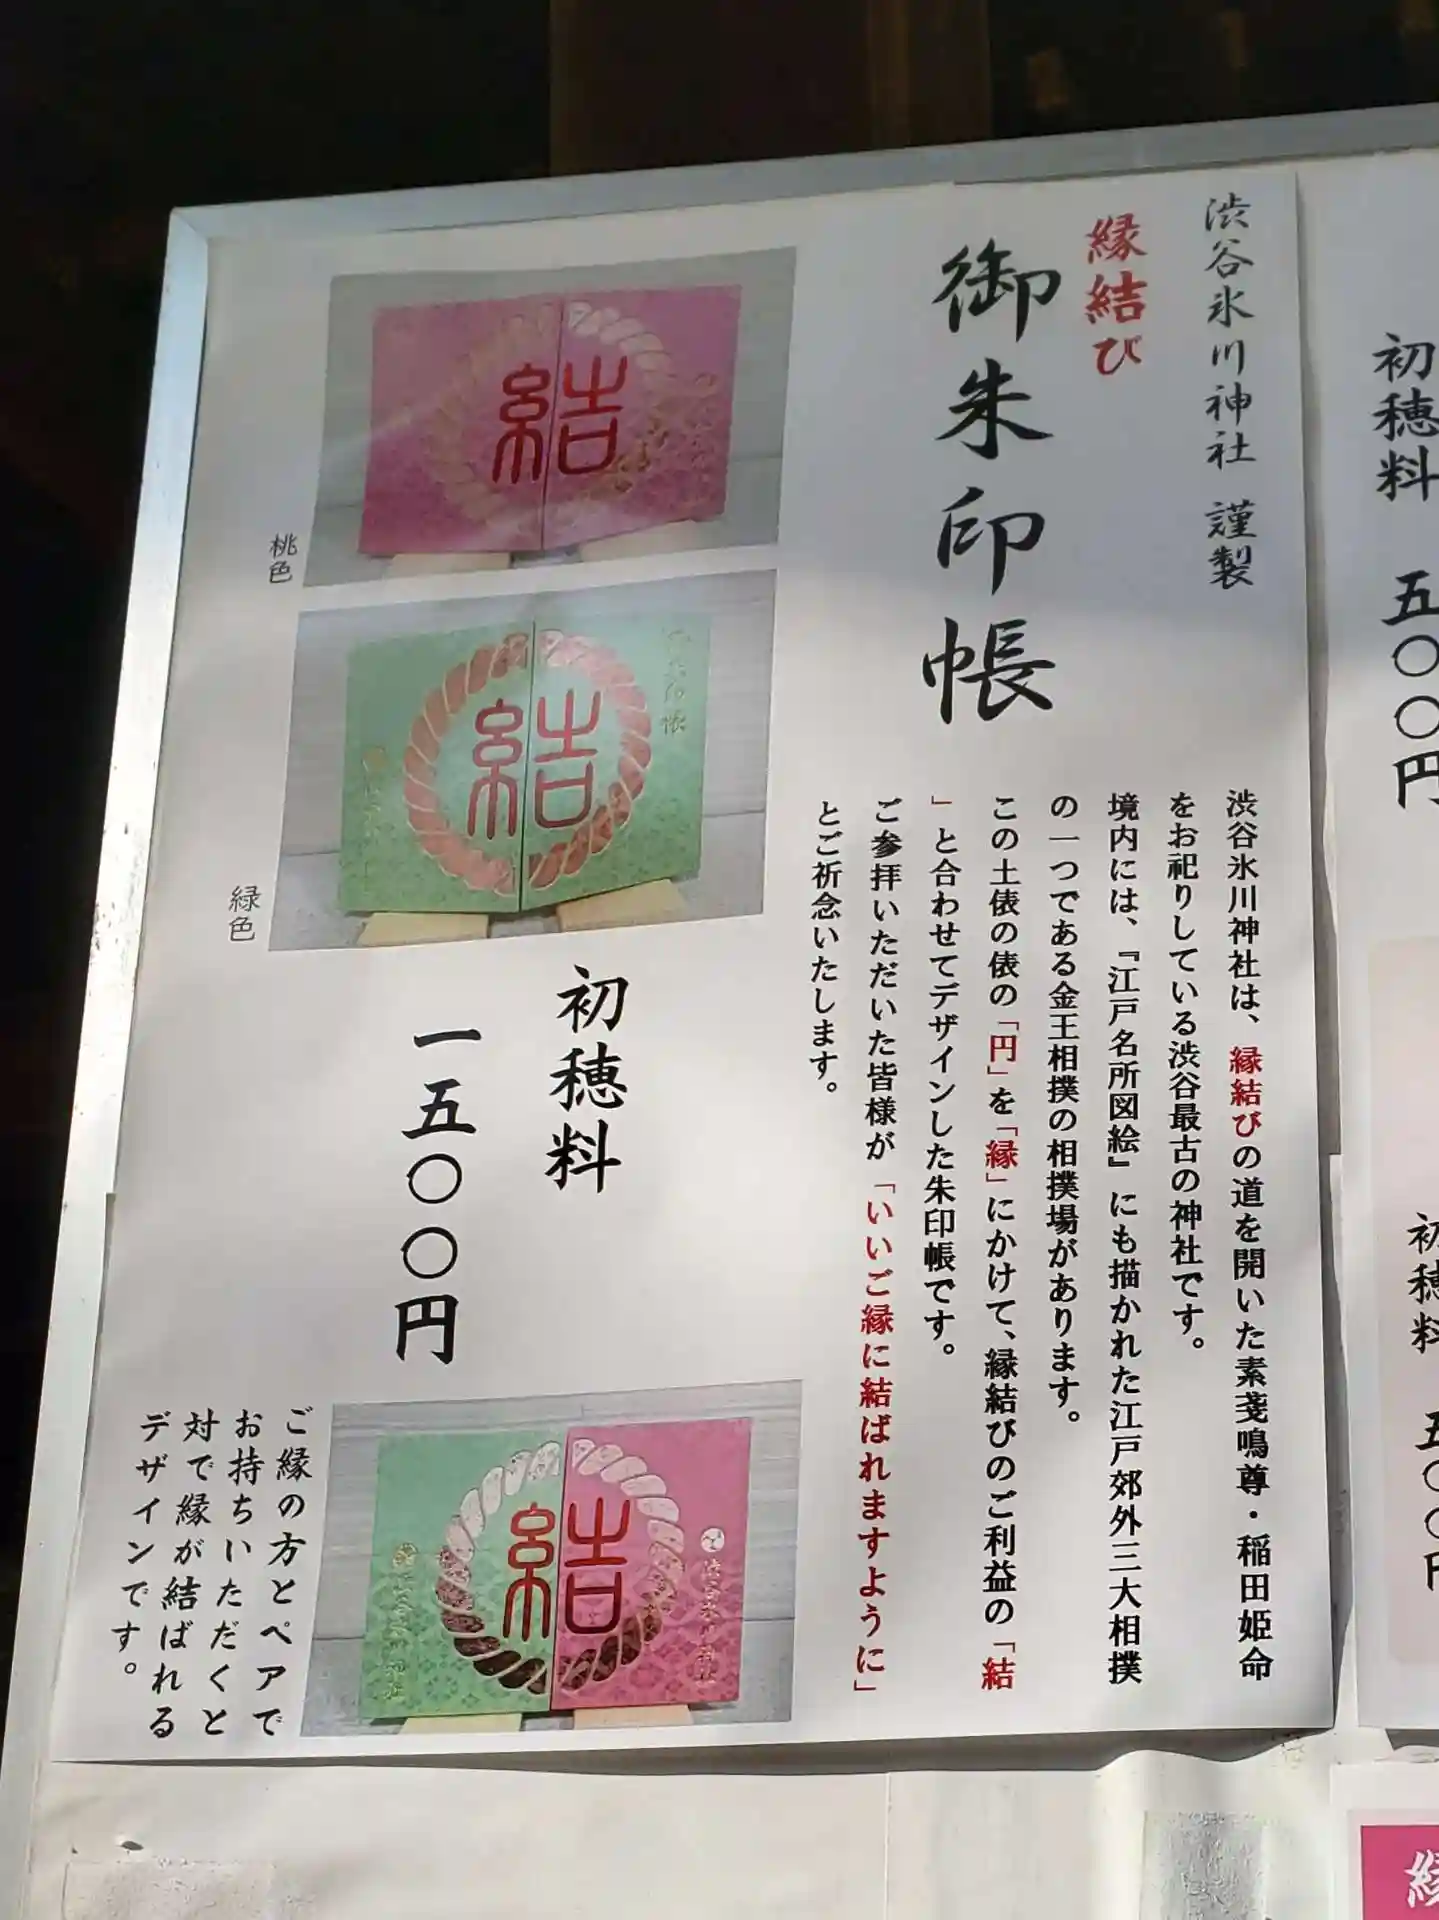 渋谷氷川神社 謹製
縁結び
御朱印帳
渋谷氷川神社は、縁結びの道を開いた素戔鳴尊・稲田姫命
をお祀りしている渋谷最古の神社です。
境内には、『江戸名所図絵』にも描かれた江戸郊外三大相撲
の一つである金王相撲の相撲場があります。
この土俵の俵の「円」を「縁」にかけて、縁結びのご利益の「結
」と合わせてデザインした朱印帳です。
ご参拝いただいた皆様が「いいご縁に結ばれますように」
とご祈念いたします。
結
桃色
結
緑色
初穂料
一五〇〇円
渋谷氷川神社
結
ご縁の方とペアで
お持ちいただくと
対で縁が結ばれる
デザインです。
初穂料 五〇〇円
初穂料